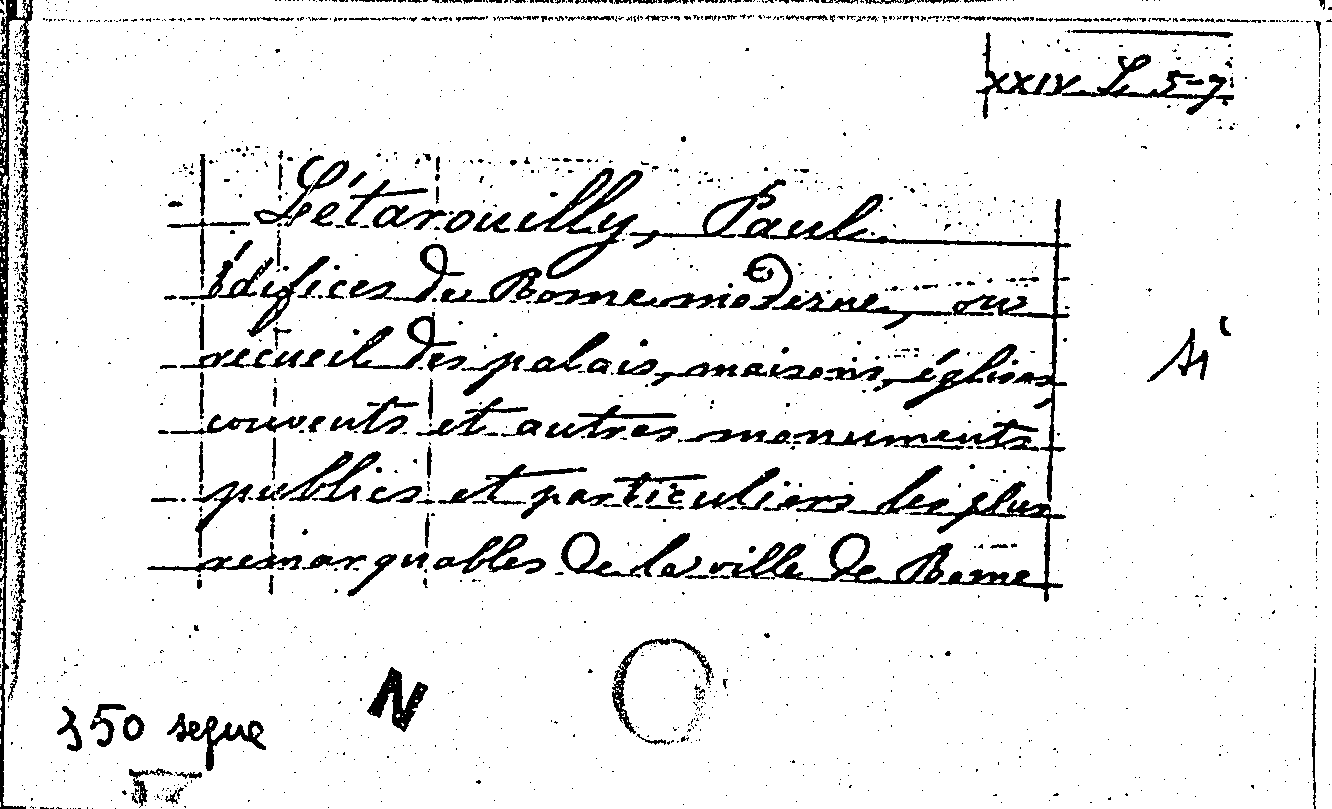 XXIV. L. 5-7
Létarouilly, Paul.
Édifices de Rome moderne, ou
recueil des palais, maisons, églises,
couvents et autres monuments
publics et particuliers les plus
remarquables de la ville de Rome
N
350 segue